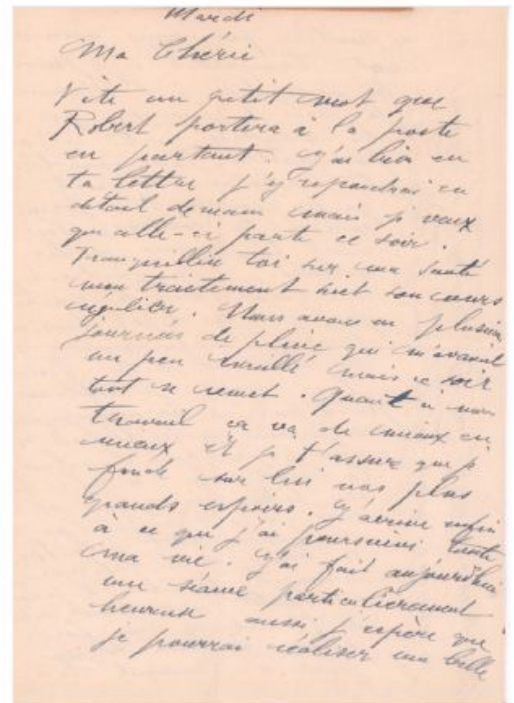 Mardi
Ma Chérie
Vite un petit mot que
Robert portera à la poste
en partant. J'ai bien eu
ta lettre j'y repondrai en
détail demain mais je veux
que celle-ci parte ce soir.
Tranquillise toi sur ma santé
mon traitement suit son cours
régulier. Nous avons eu plusieurs
journées de pluie qui m'avaient
un peu mais ce soir
tout se remet. Quant à mon
travail ca va de mieux en
mieux et je t'assure que je
fonde sur lui nos plus
grands espoirs. J'arrive enfin
à ce que j'ai poursuivi toute
ma vie. J'ai fait aujourd'hui
une séance particulièrement
heureuse aussi j'espère que
je pourrai réaliser une belle